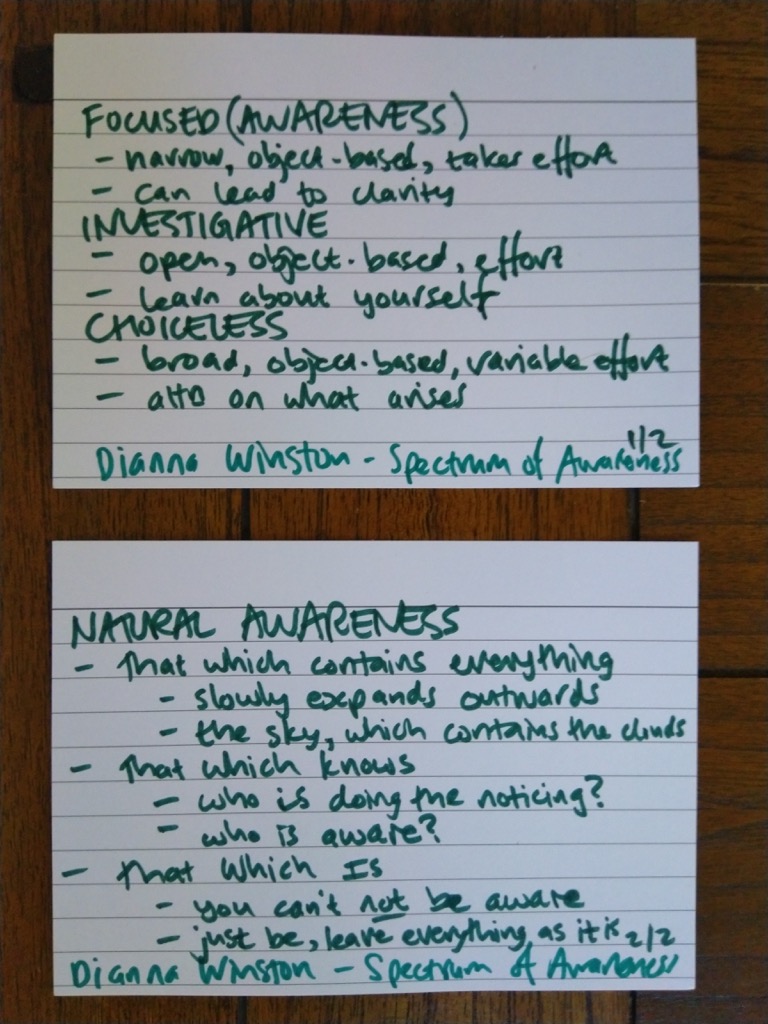 FOCUSED (AWARENESS)
- narrow, object-based, takes effort
- can lead to clarity
INVESTIGATIVE
- open, object-based, effort
- learn about yourself
CHOICELESS
- broad, object-based, variable effort
- attn on what arises
1/2
Dianna Winston - Spectrum of Awareness
NATURAL AWARENESS
- That which contains everything
- slowly expands outwards
- the sky, which contains the clouds
- That which knows
- who is doing the noticing?
- who is aware?
- That Which Is
- you can't not be aware
- just be, leave everything as it is 2/2
Dianna Winston - Spectrum of Awareness